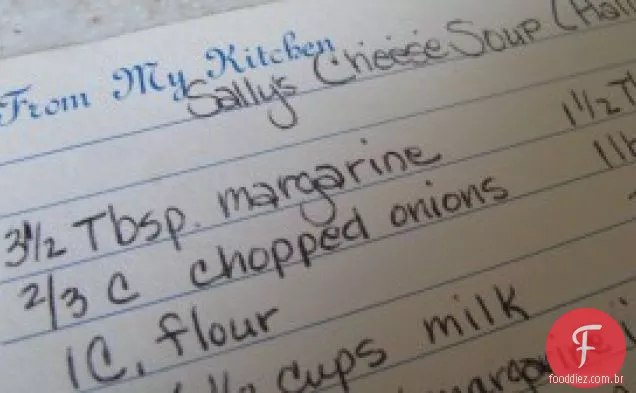 From My Kitchen
Sally's Cheese Soup (Hal
3 1/2 Tbsp. margarine 1 1/2 Tb
2/3 C chopped onions 1 lb
1 C. flour
1/2 cups milk
margarine
F
fooddiez.com.br